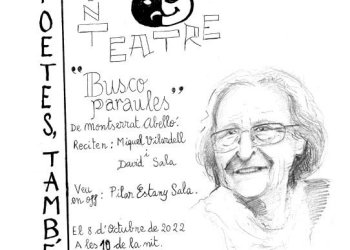 POETES, TAMBÉ
EN
TEATRE
"Busco
paraules"
De Montserrat Abelló.
Reciten: Miquel Vilardell
i
David Sala
Veu
en off: Pilar Estany Sala.
El 8 d'Octubre de 2022
A les 10 de la nit.